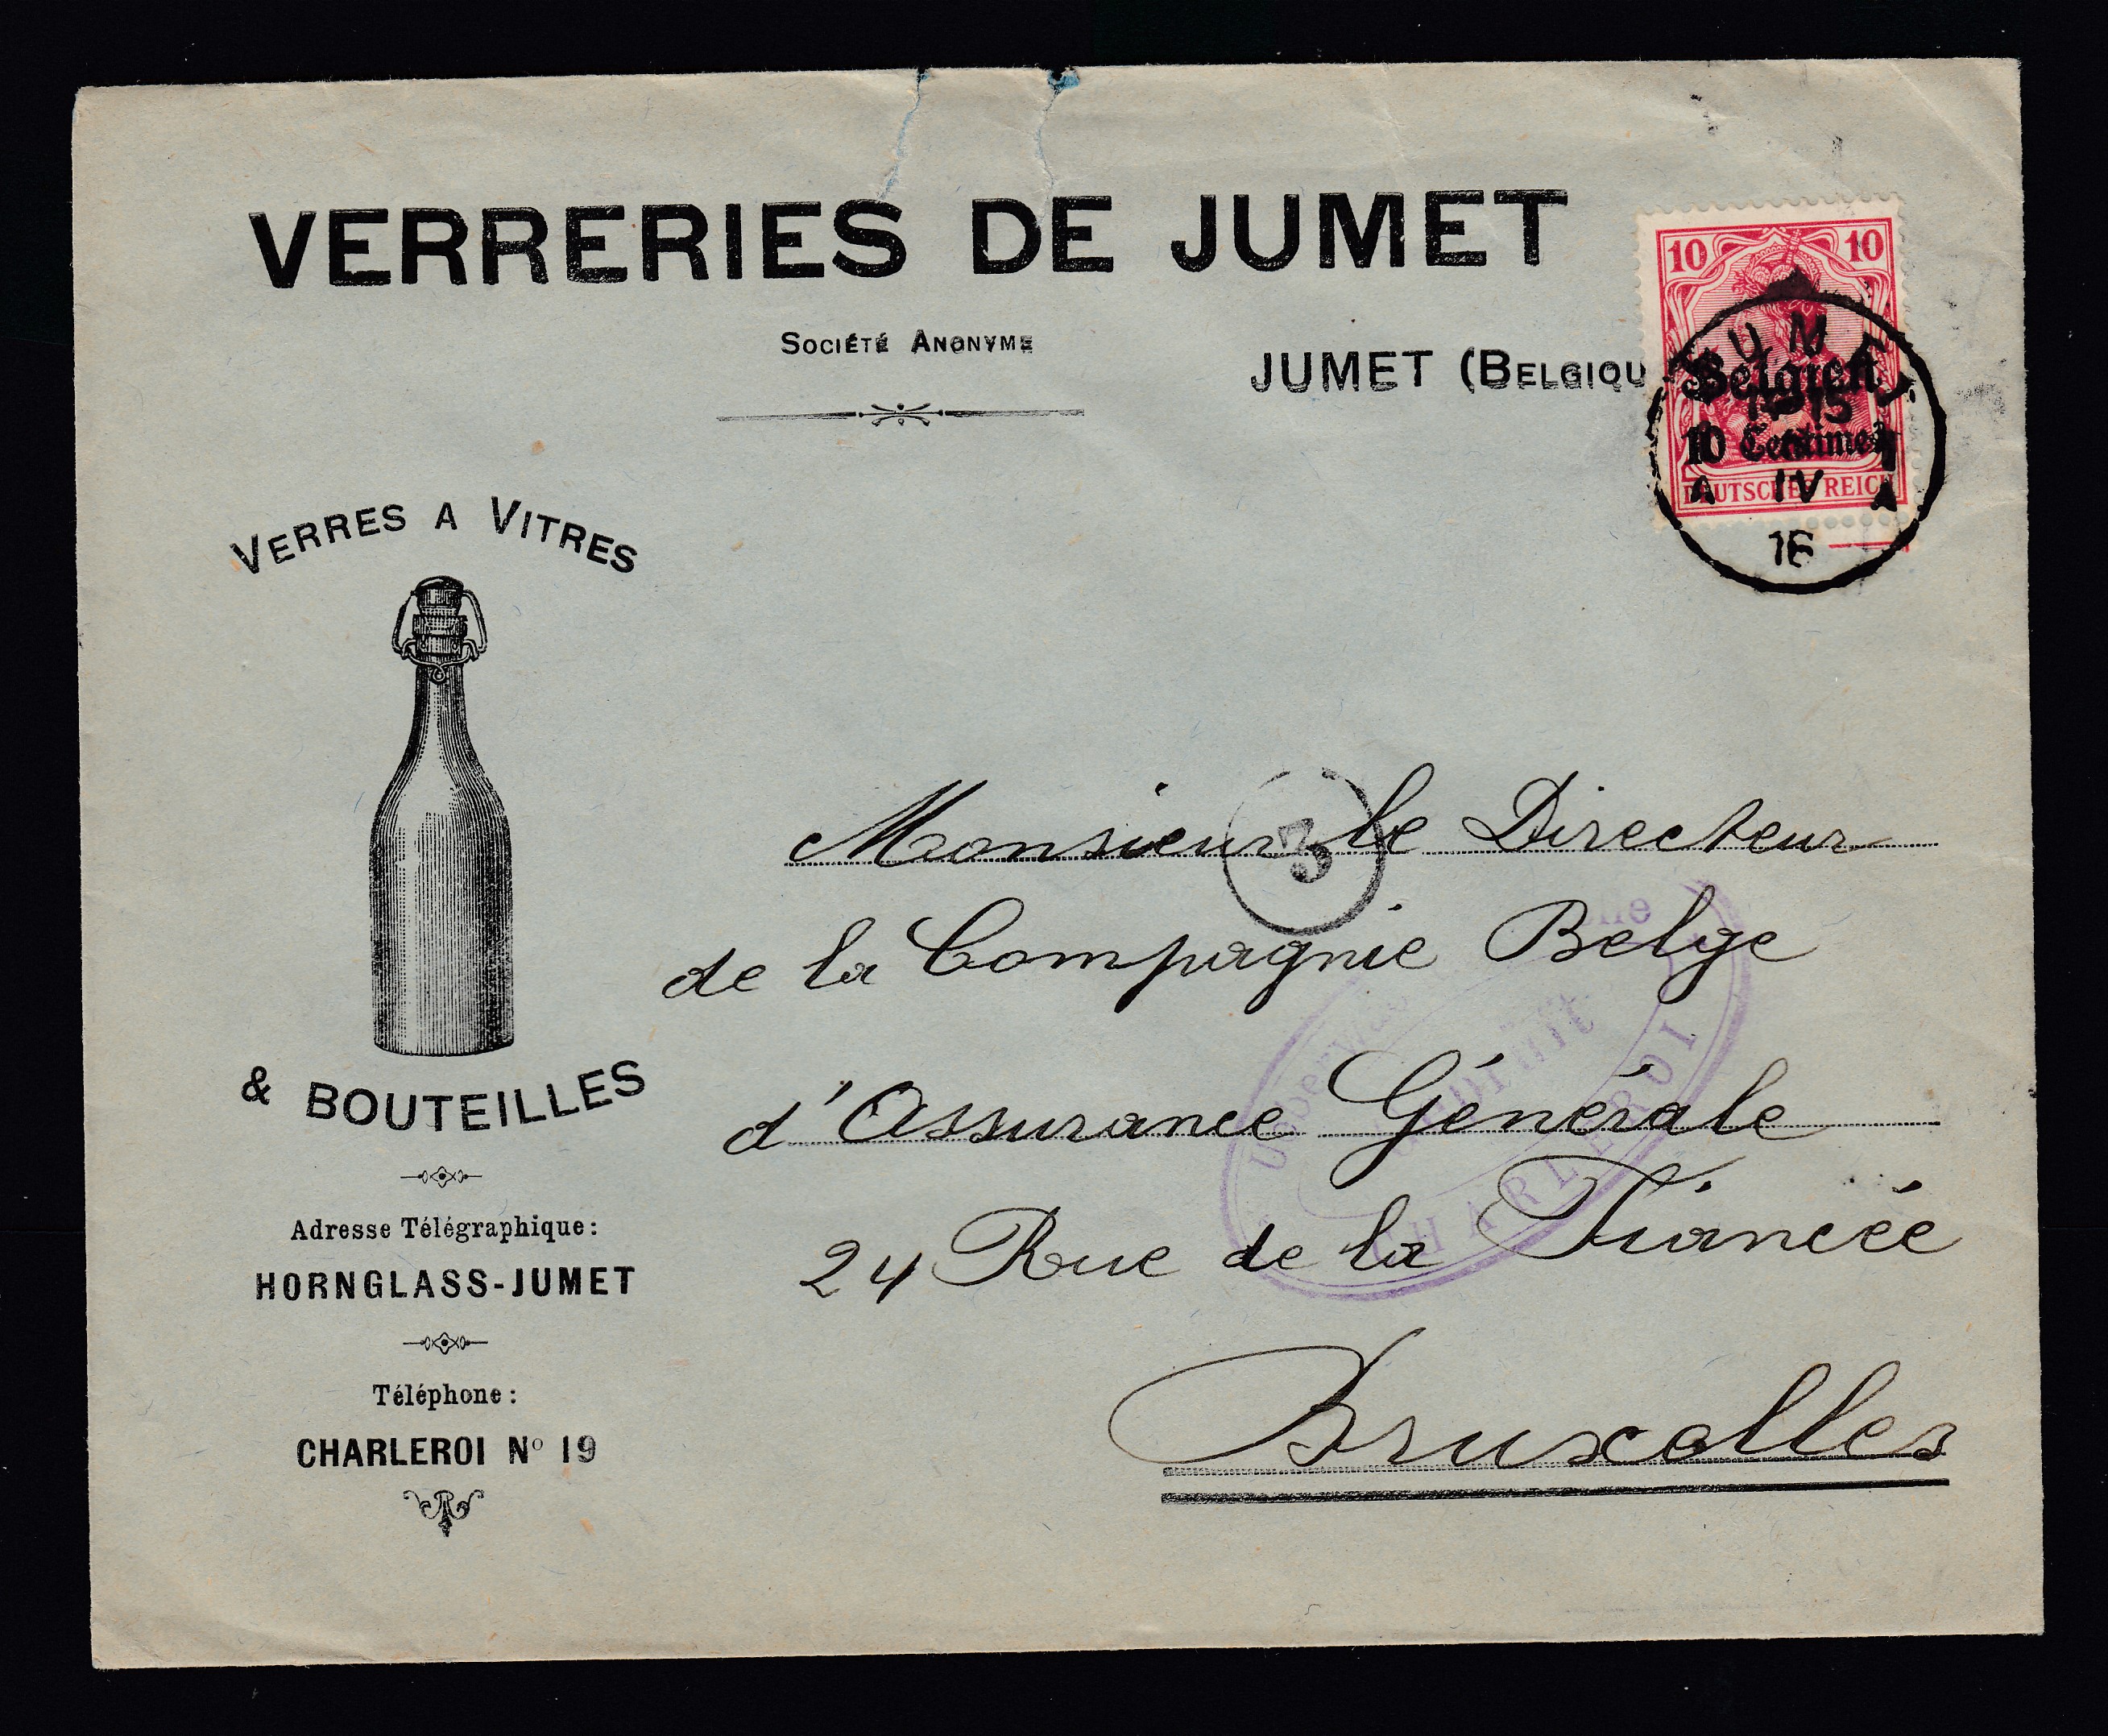 VERRERIES DE JUMET
SOCIÉTÉ ANONYME
JUMET (BELGIQU
10 10
Belgien
10 Centimes
DEUTSCHES REICH
JUMET
14-15
IV
A A
16
VERRES A VITRES
& BOUTEILLES
Adresse Télégraphique:
HORNGLASS-JUMET
Téléphone:
CHARLEROI Nº 19
3
Monsieur le Directeur
de la Compagnie Belge
d'Assurance Générale
24 Rue de la Fiancée
Bruxelles
CHARLEROI